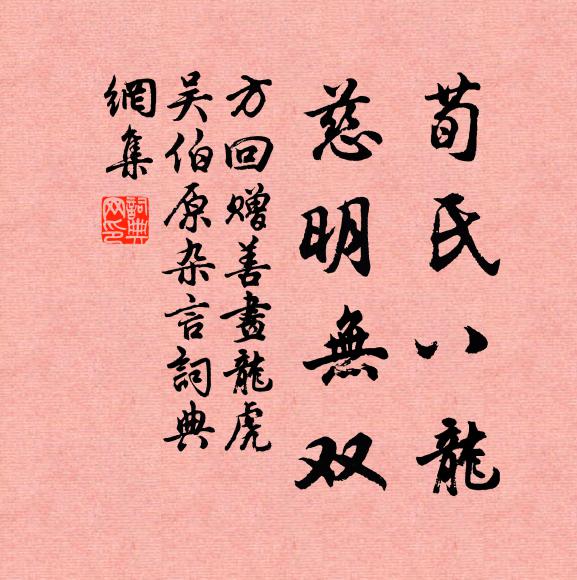 荀氏八龍
慈明無双
方回贈善畫龍虎
吴伯原杂言詞典
網集
詞典
网印